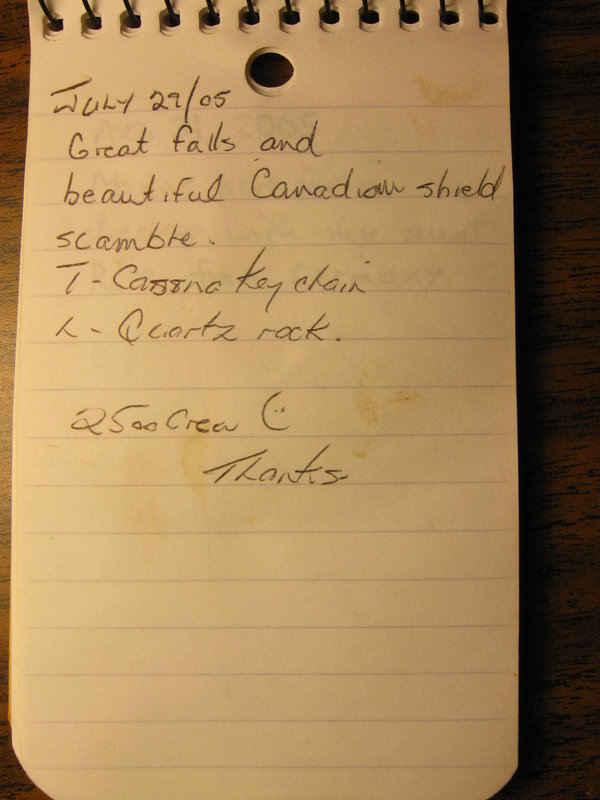 July 29/05
Great falls and
beautiful Canadian shield
scamble.
T - key chain
L - Quartz rock.
2500 Crew (:
Thanks